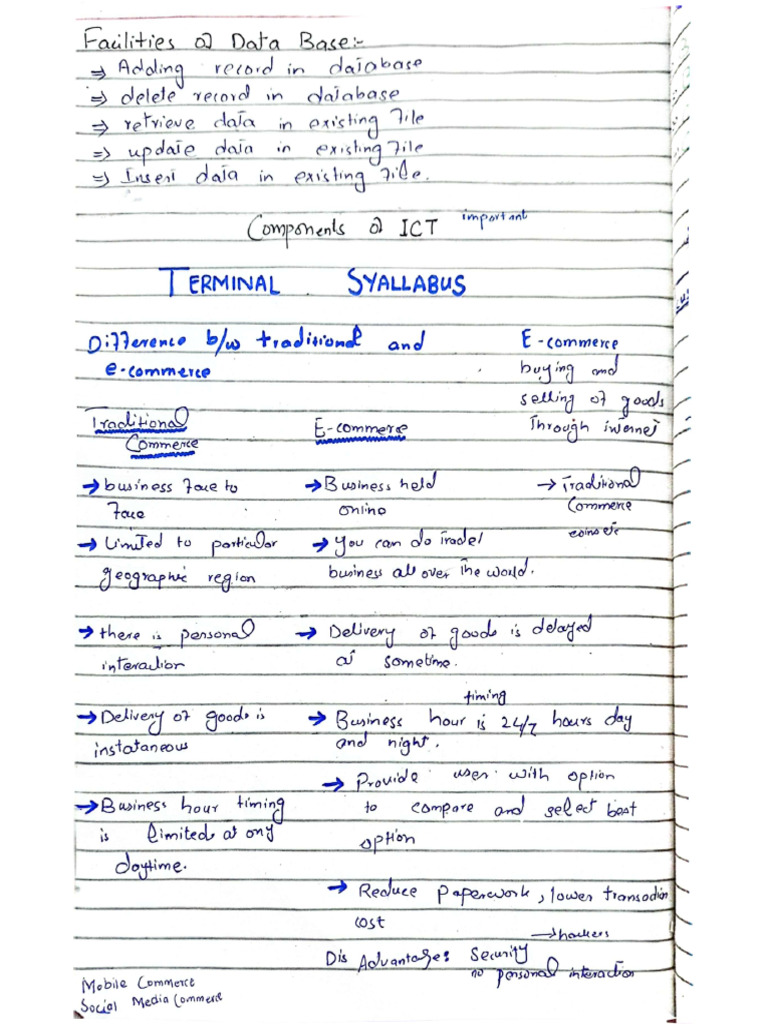 Facilities of Data Base:-
⇒ Adding record in database
⇒ delete record in database
⇒ retrieve data in existing file
⇒ update data in existing file
⇒ Insert data in existing file.
Components of ICT important
TERMINAL SYALLABUS
Difference b/w traditional and
e-commerce
E-commerce
buying and
selling of goods
Through internet
→ Traditional
Commerce
coins etc
Traditional
Commerce
→ business face to
face
→ Limited to particular
geographic region
→ there is personal
interaction
→ Delivery of goods is
instataneous
→ Business hour timing
is limited at any
daytime.
E-commerse
→ Business held
online
→ You can do trade/
business all over the world.
→ Delivery of goods is delayed
at sometime.
timing
→ Business hour is 24/7 hours day
and night.
→ Provide user with option
to compare and select best
option
→ Reduce paperwork, lower transaction
cost
→ hackers
Dis Advantage: Security
no personal interaction
Mobile Commerce
Social Media Commerce